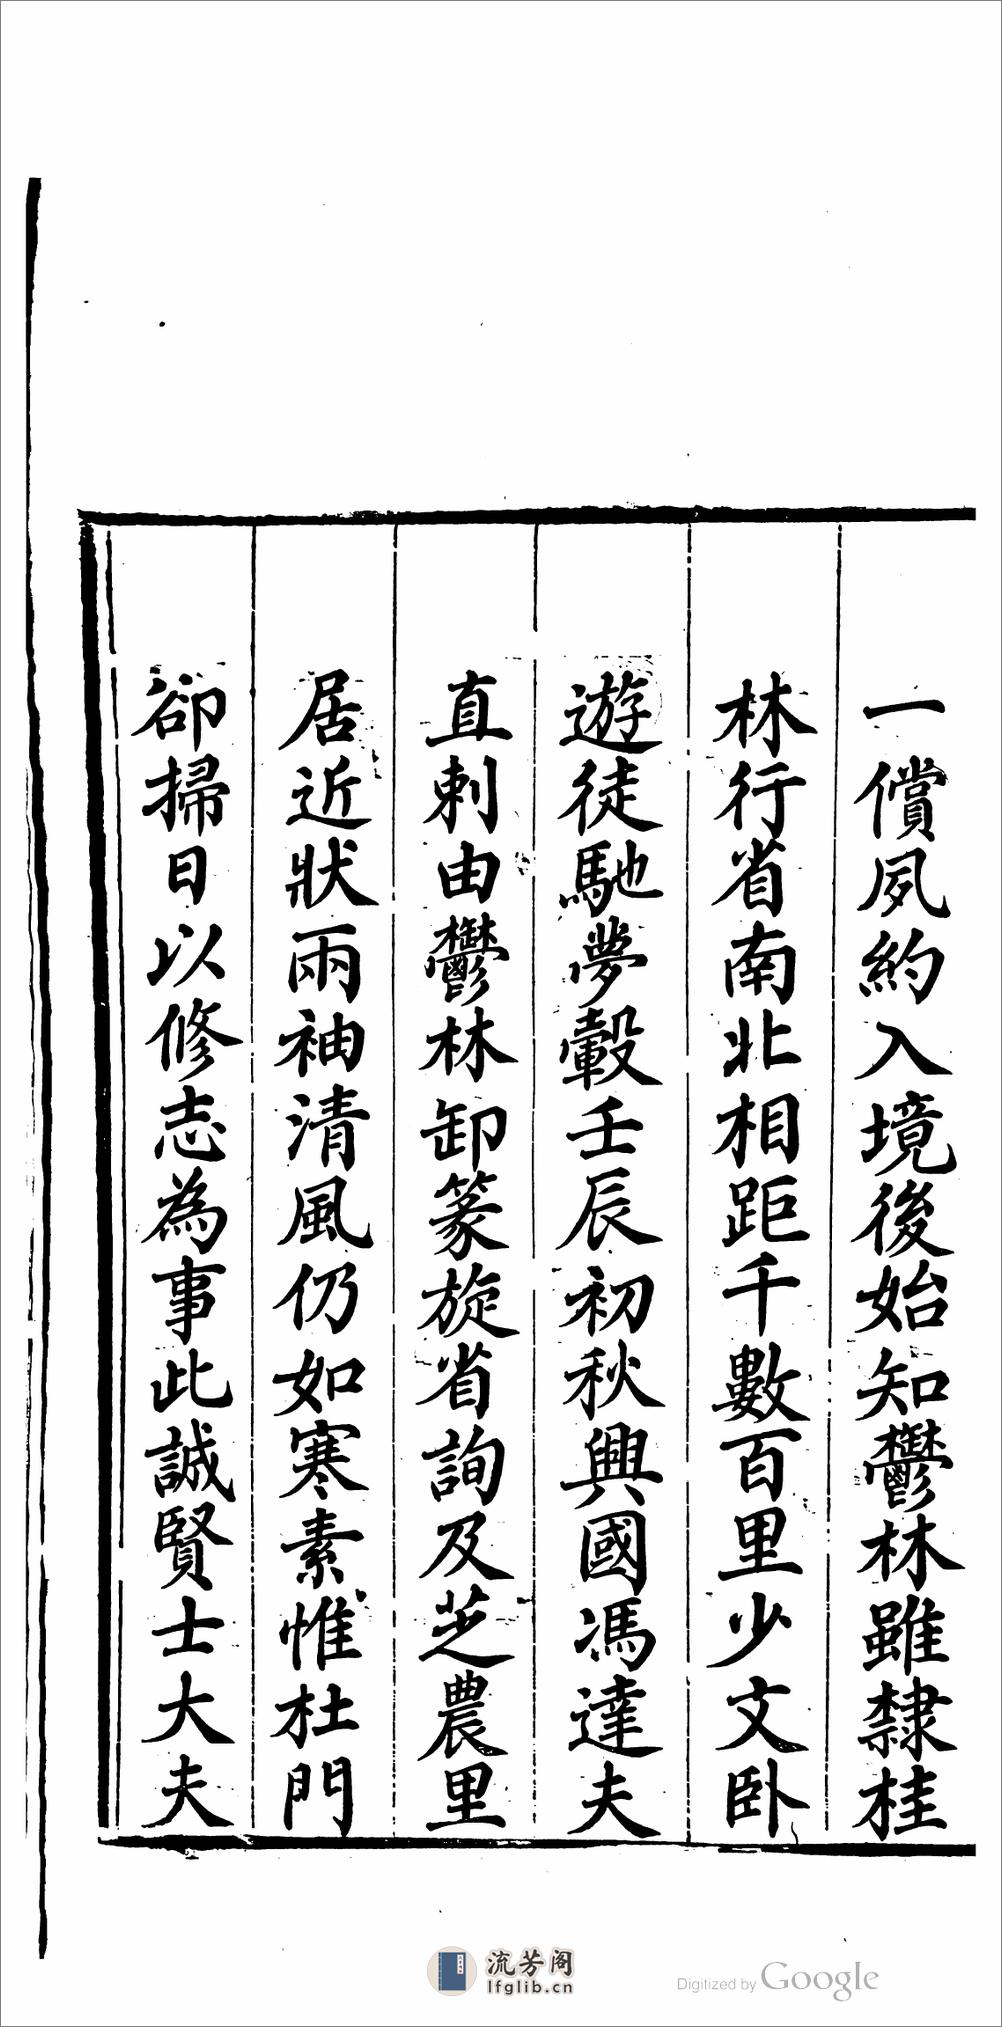 一償夙約入境後始知鬱林雖隸桂
林行省南北相距千數百里少文卧
遊徒馳夢轂壬辰初秋興國馮達夫
直刺由鬱林卸篆旋省詢及芝農里
居近狀兩袖清風仍如寒素惟杜門
卻掃日以修志為事此誠賢士大夫
流芳阁
lfglib.cn
Digitized by Google